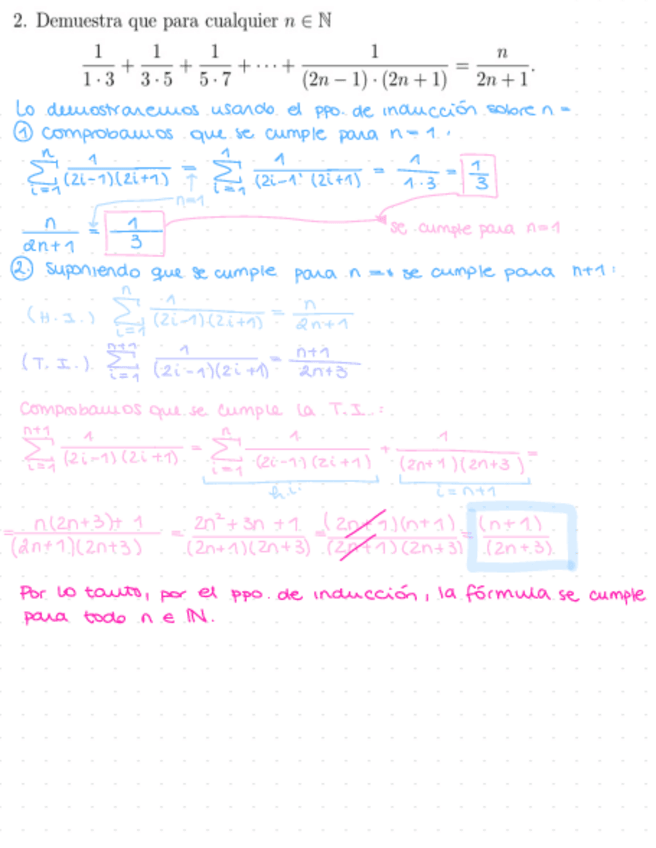 2. Demuestra que para cualquier n ∈ ℕ
1/(1·3) + 1/(3·5) + 1/(5·7) + ··· + 1/((2n − 1)·(2n + 1)) = n/(2n + 1).
Lo demostraremos usando el ppo. de inducción sobre n =
① comprobamos que se cumple para n = 1.
∑_{i=1}^{n} 1/((2i-1)(2i+1)) = ∑_{i=1}^{1} 1/((2i-1)(2i+1)) = 1/(1·3) = 1/3
↑ n=1
n/(2n+1) = 1/3
se cumple para n=1
② Suponiendo que se cumple para n => se cumple para n+1:
(H.I.) ∑_{i=1}^{n} 1/((2i-1)(2i+1)) = n/(2n+1)
(T.I.) ∑_{i=1}^{n+1} 1/((2i-1)(2i+1)) = (n+1)/(2n+3)
Comprobamos que se cumple la T.I.:
∑_{i=1}^{n+1} 1/((2i-1)(2i+1)) = ∑_{i=1}^{n} 1/((2i-1)(2i+1)) + 1/((2n+1)(2n+3)) =
h.i. i=n+1
= (n(2n+3)+1)/((2n+1)(2n+3)) = (2n²+3n+1)/((2n+1)(2n+3)) = ((2n+1)(n+1))/((2n+1)(2n+3)) = (n+1)/(2n+3)
Por lo tanto, por el ppo. de inducción, la fórmula se cumple
para todo n ∈ ℕ.